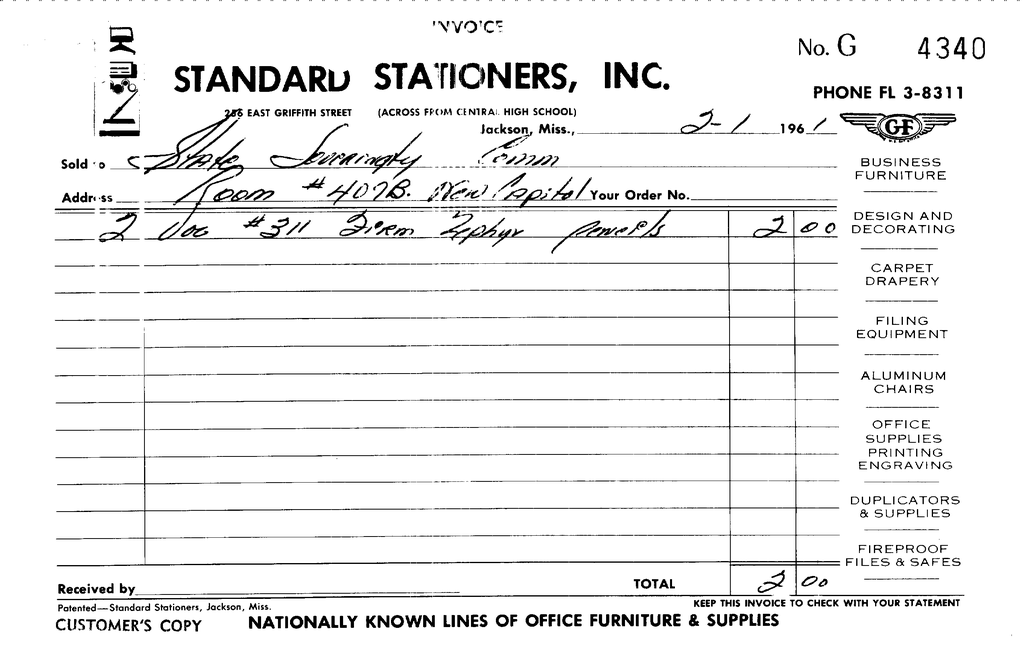 INVOICE
No. G 4340
STANDARD STATIONERS, INC.
PHONE FL 3-8311
256 EAST GRIFFITH STREET (ACROSS FROM CENTRAL HIGH SCHOOL)
Jackson, Miss., 2-1 1961
GF
Sold to State Soveringty Comm
Address Room #407B. New Capitol Your Order No.
2 Doz #311 Firm Zephyr pencils 2 00
BUSINESS
FURNITURE
DESIGN AND
DECORATING
CARPET
DRAPERY
FILING
EQUIPMENT
ALUMINUM
CHAIRS
OFFICE
SUPPLIES
PRINTING
ENGRAVING
DUPLICATORS
& SUPPLIES
FIREPROOF
FILES & SAFES
Received by TOTAL 2 00
Patented—Standard Stationers, Jackson, Miss.
KEEP THIS INVOICE TO CHECK WITH YOUR STATEMENT
CUSTOMER'S COPY NATIONALLY KNOWN LINES OF OFFICE FURNITURE & SUPPLIES